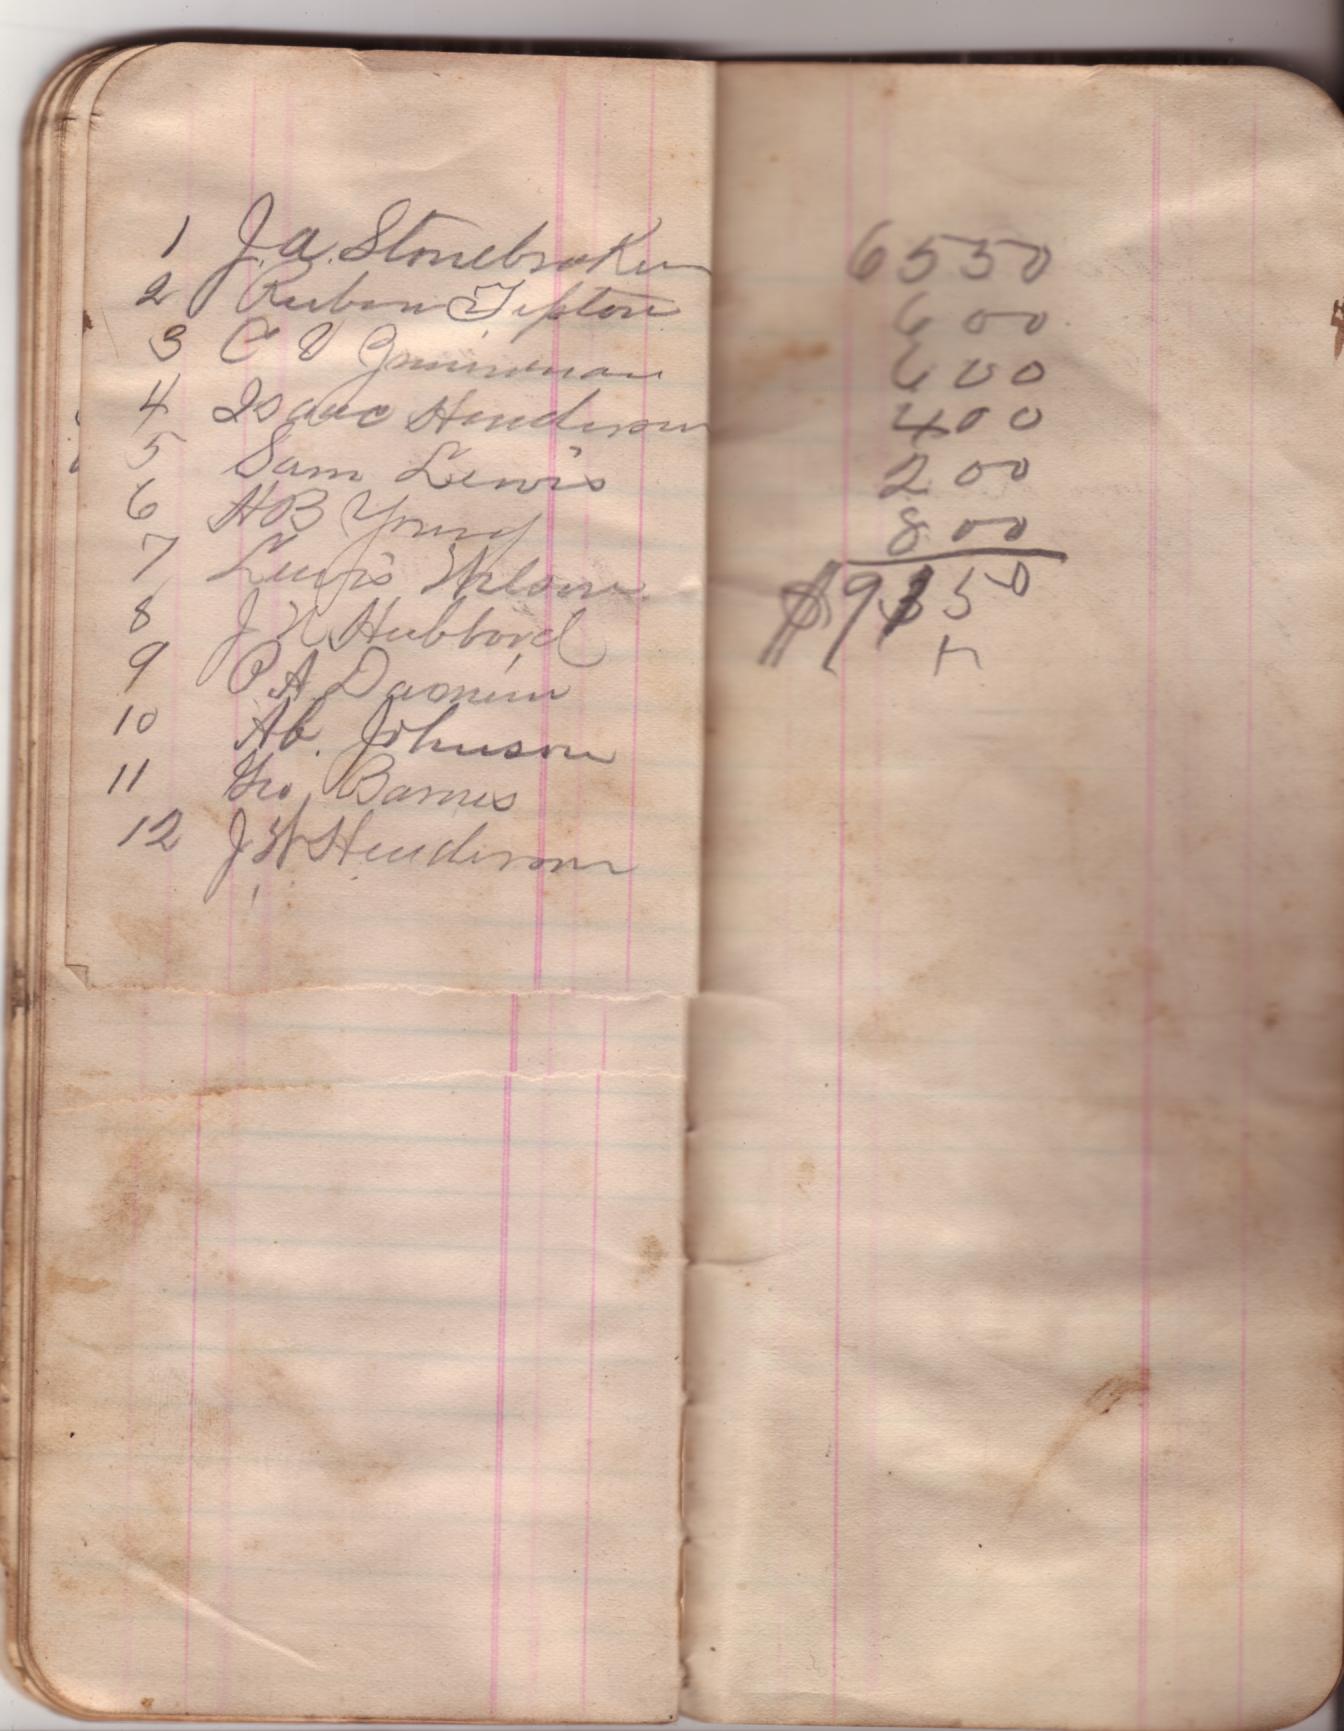 1 J.A. Stonebraker
2 Ruben Tipton
3 C V
4 Isaac Henderson
5 Sam Lewis
6 HB Young
7 Lewis
8 J N Hubbard
9 P A
10 Ab. Johnson
11 Geo. Barnes
12 J W Henderson
6550
600
600
400
200
800
$9150